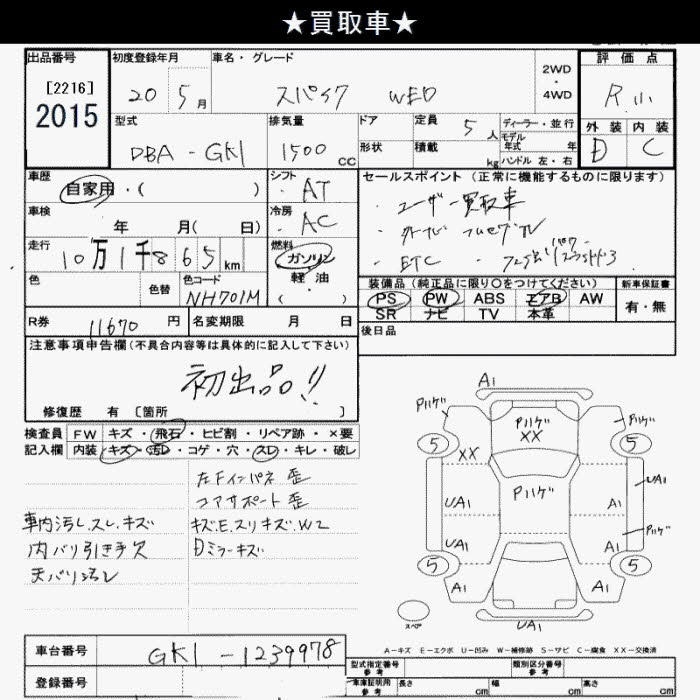 ★買取車★
出品番号
[2216]
2015
初度登録年月
20 5月
車名・グレード
スパイク
2WD
・
4WD
評価点
R
外装 内装
D C
型式
DBA-GK1
排気量
1500 CC
ドア
形状
定員 5人
積載 kg
ディーラー・並行
モデル年式 年
ハンドル 左・右
車歴
自家用・( )
シフト
・AT
車検
年 月( 日)
冷房
・AC
走行
10万1千865km
燃料
ガソリン
軽油
・( )
色
色替
色コード
NH701M
セールスポイント (正常に機能するものに限ります)
・ユーザー買取車
・ナビ フルセグTV
・ETC
装備品 (純正品に限り○をつけてください)
PS PW ABS エアB AW
SR ナビ TV 本革
新車保証書
有・無
R券 11670 円
名変期限 月 日
後日品
注意事項申告欄(不具合内容等は具体的に記入して下さい)
初出品!!
修復歴 有 [箇所 ]
検査員記入欄
FW キズ・飛石・ヒビ割・リペア跡・×要
内装 キズ・汚レ・コゲ・穴・スレ・キレ・破レ
左Fインパネ 歪
コアサポート 歪
車内汚レ.スレ.キズ
キズE.スリキズ.W2
内バリ引き手欠
Dミラーキズ
天バリ汚レ
A1
Pハゲ
Pハゲ
XX
Pハゲ
5
5
XX
Pハゲ
UA1
A1
UA1
UA1
Pハゲ
5
5
A1
A1
スペア
UA1
A-キズ E-エクボ U-凹み W-補修跡 S-サビ C-腐食 XX-交換済
車台番号
GK1-1239978
登録番号
型式指定番号
参考
類別区分番号
参考
車庫証明用
参考
長さ cm
幅 cm
高さ cm